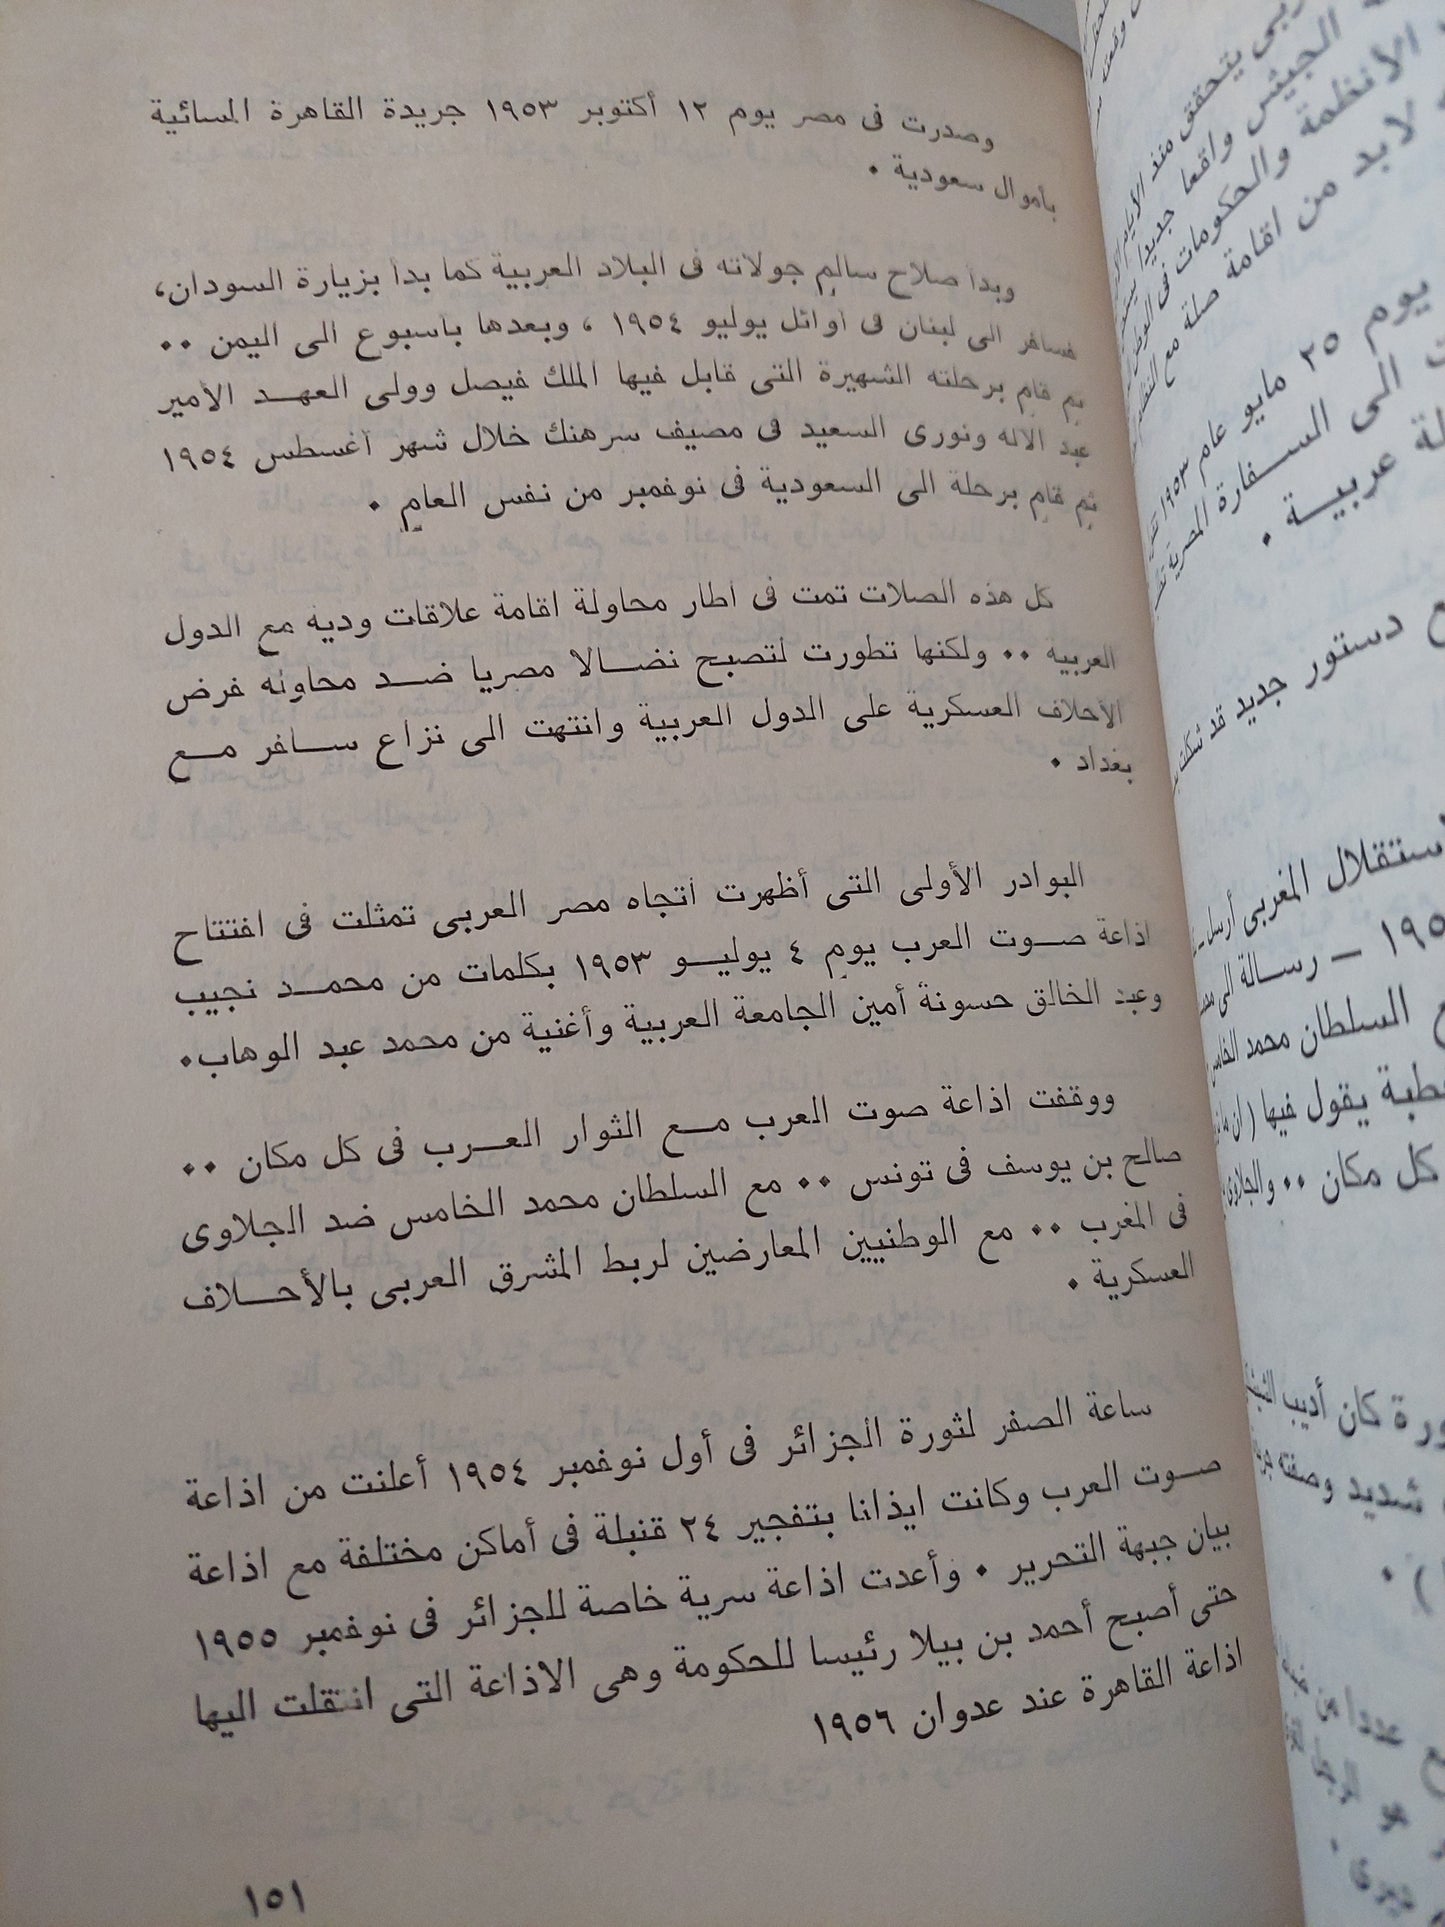 وصدرت فى مصر يوم ١٢ أكتوبر ١٩٥٣ جريدة القاهرة المسائية
بأموال سعودية ٠
وبدأ صلاح سالم جولاته فى البلاد العربية كما بدأ بزيارة السودان،
فسافر الى لبنان فى أوائل يوليو ١٩٥٤ ، وبعدها بأسبوع الى اليمن ٠٠
ثم قام برحلته الشهيرة التى قابل فيها الملك فيصل وولى العهد الأمير
عبد الاله ونورى السعيد فى مصيف سرهنك خلال شهر أغسطس ١٩٥٤
ثم قام برحلة الى السعودية فى نوفمبر من نفس العام ٠
كل هذه الصلات تمت فى اطار محاولة اقامة علاقات وديه مع الدول
العربية ٠٠ ولكنها تطورت لتصبح نضالا مصريا ضد محاولة فرض
الأحلاف العسكرية على الدول العربية وانتهت الى نزاع سافر مع
بغداد ٠
البوادر الأولى التى أظهرت اتجاه مصر العربى تمثلت فى افتتاح
اذاعة صوت العرب يوم ٤ يوليو ١٩٥٣ بكلمات من محمد نجيب
وعبد الخالق حسونة أمين الجامعة العربية وأغنية من محمد عبد الوهاب٠
ووقفت اذاعة صوت العرب مع الثوار العرب فى كل مكان ٠٠
صالح بن يوسف فى تونس ٠٠ مع السلطان محمد الخامس ضد الجلاوى
فى المغرب ٠٠ مع الوطنيين المعارضين لربط المشرق العربى بالأحلاف
العسكرية ٠
ساعة الصفر لثورة الجزائر فى أول نوفمبر ١٩٥٤ أعلنت من اذاعة
صوت العرب وكانت ايذانا بتفجير ٢٤ قنبلة فى أماكن مختلفة مع اذاعة
بيان جبهة التحرير ٠ وأعدت اذاعة سرية خاصة للجزائر فى نوفمبر ١٩٥٥
حتى أصبح أحمد بن بيلا رئيسا للحكومة وهى الاذاعة التى انتقلت اليها
اذاعة القاهرة عند عدوان ١٩٥٦
١٥١
يتحقق منذ الأيام
الجيش واقعا جديدا
الأنظمة والحكومات فى الوطن
لابد من اقامة صلة مع
يوم ٢٥ مايو عام ١٩٥٣
الى السفارة المصرية
عربية ٠
دستور جديد قد شكلت
استقلال المغربى أرسل
— رسالة الى
السلطان محمد الخامس
يقول فيها ( ان
كل مكان ٠٠ والجلاوى
كان أديب
شديد وصفته
) ٠
عددا من